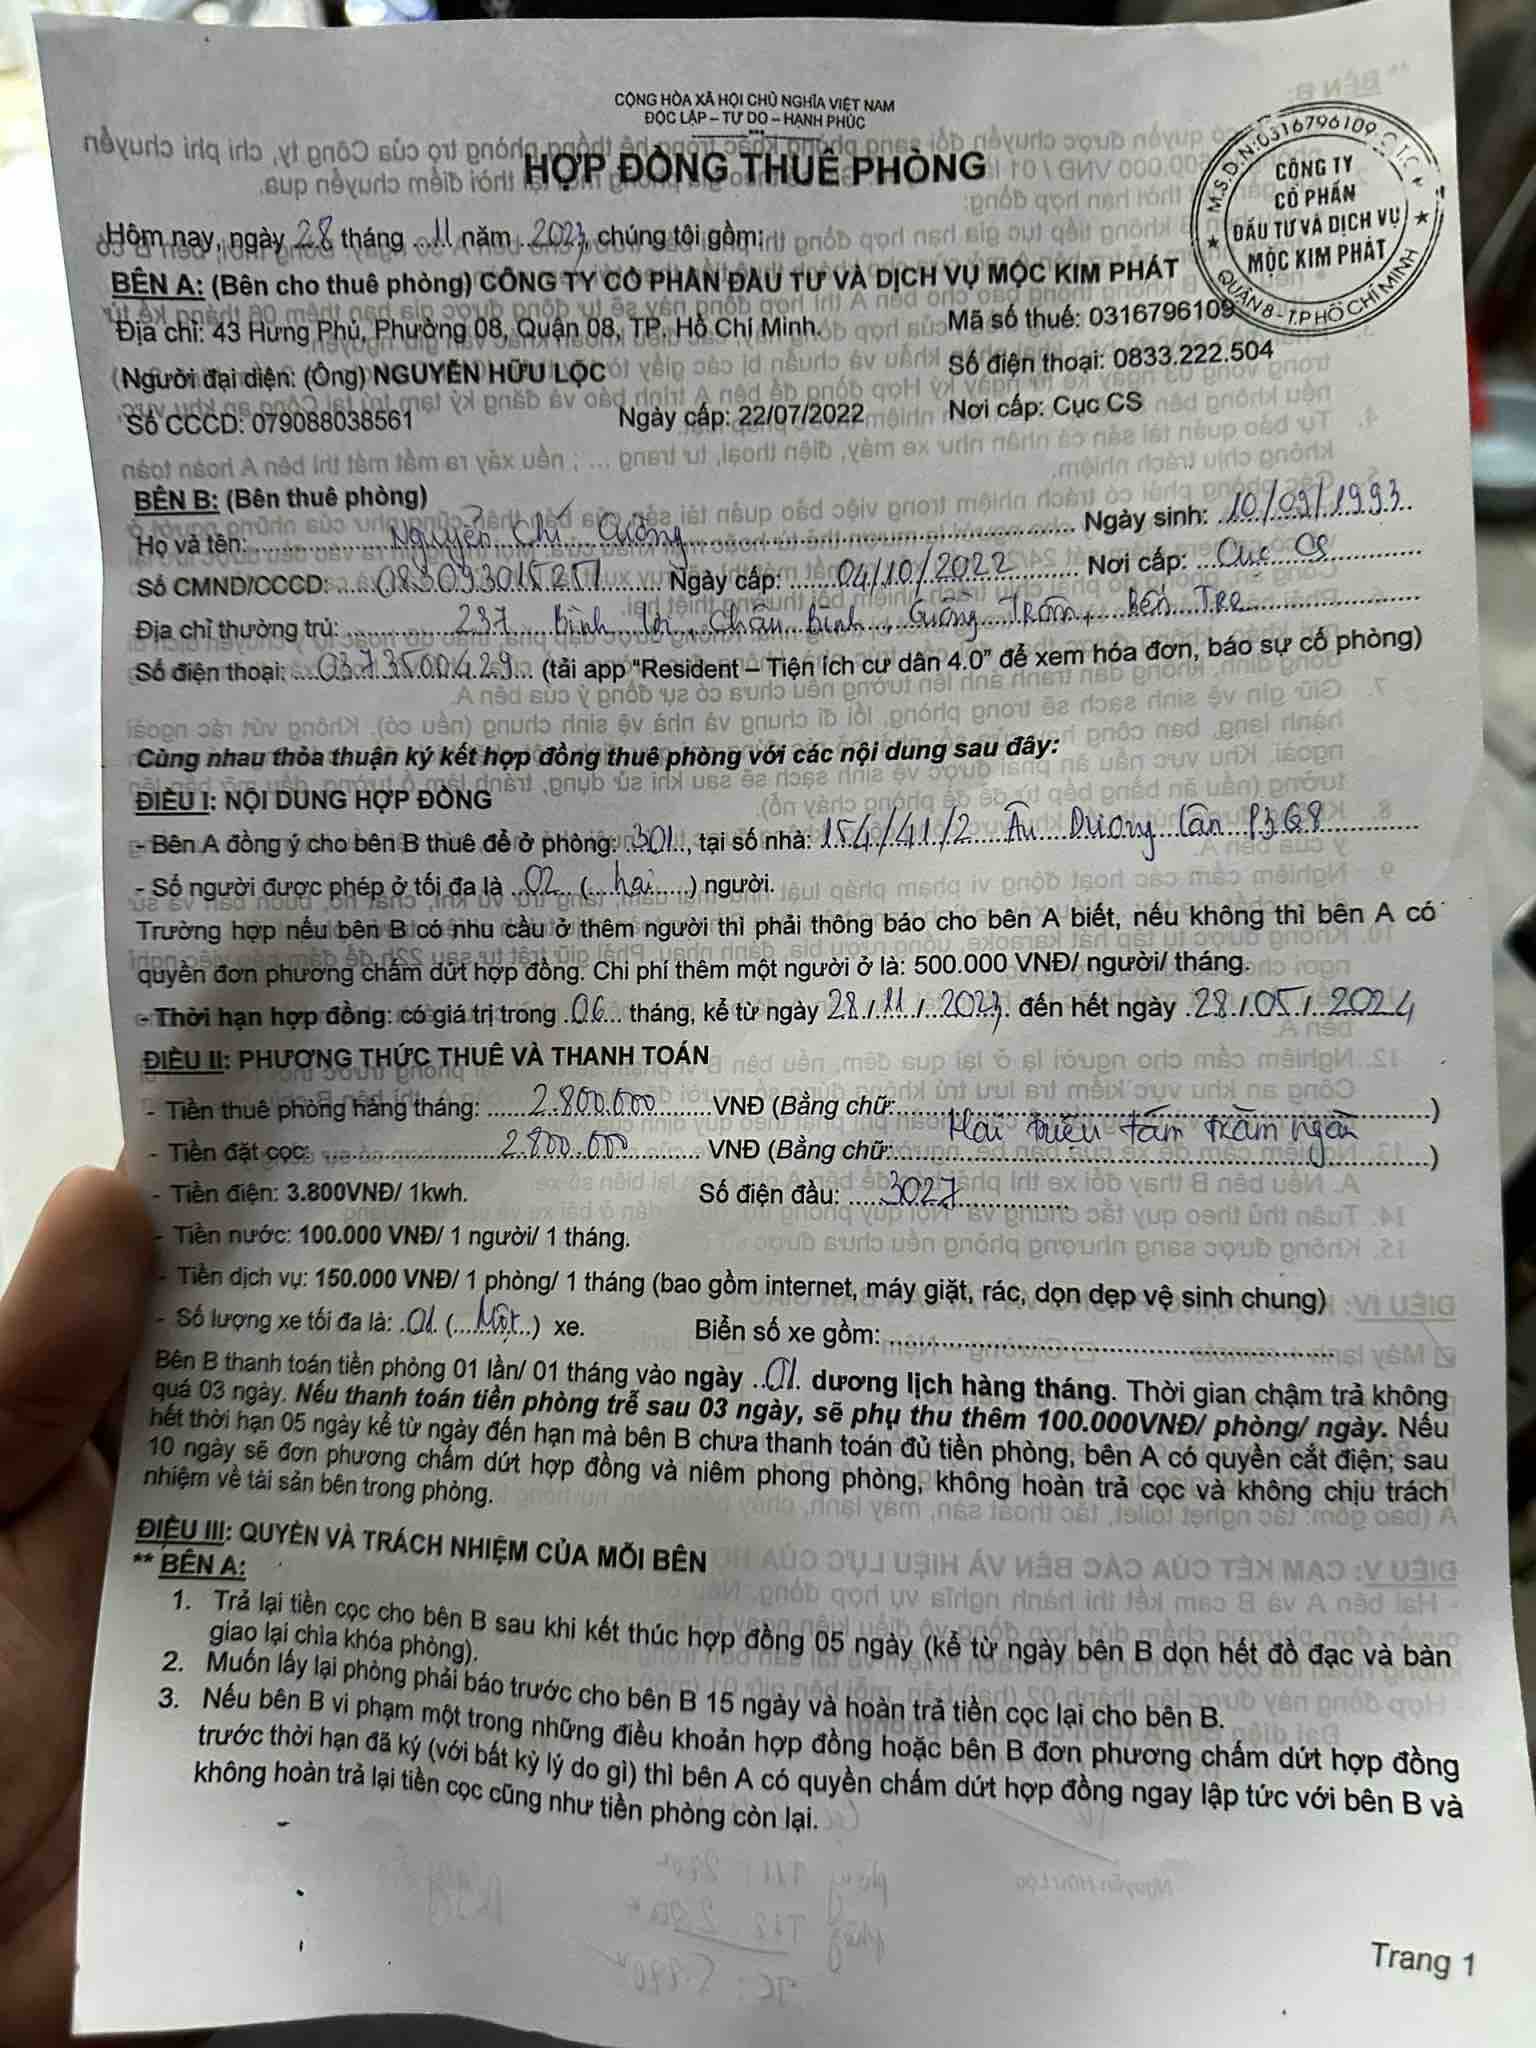 CỘNG HÒA XÃ HỘI CHỦ NGHĨA VIỆT NAM
ĐỘC LẬP – TỰ DO – HẠNH PHÚC
HỢP ĐỒNG THUÊ PHÒNG
M.S.D.N:0316796109.C.T.C.
CÔNG TY
CỔ PHẦN
ĐẦU TƯ VÀ DỊCH VỤ
MỘC KIM PHÁT
QUẬN 8 - T.P HỒ CHÍ MINH
Hôm nay, ngày 28 tháng 11 năm 2023, chúng tôi gồm:
BÊN A: (Bên cho thuê phòng) CÔNG TY CỔ PHẦN ĐẦU TƯ VÀ DỊCH VỤ MỘC KIM PHÁT
Địa chỉ: 43 Hưng Phú, Phường 08, Quận 08, TP. Hồ Chí Minh. Mã số thuế: 0316796109
(Người đại diện: (Ông) NGUYỄN HỮU LỘC Số điện thoại: 0833.222.504
Số CCCD: 079088038561 Ngày cấp: 22/07/2022 Nơi cấp: Cục CS
BÊN B: (Bên thuê phòng)
Họ và tên: Nguyễn Chí Cường Ngày sinh: 10/09/1993
Số CMND/CCCD: 083093015251 Ngày cấp: 04/10/2022 Nơi cấp: Cục CS
Địa chỉ thường trú: 237 Bình Lợi, Châu Bình, Giồng Trôm, Bến Tre
Số điện thoại: 0373500429 (tải app “Resident – Tiện ích cư dân 4.0” để xem hóa đơn, báo sự cố phòng)
Cùng nhau thỏa thuận ký kết hợp đồng thuê phòng với các nội dung sau đây:
ĐIỀU I: NỘI DUNG HỢP ĐỒNG
- Bên A đồng ý cho bên B thuê để ở phòng: 301, tại số nhà: 154/41/2 Âu Dương Lân P3Q8
- Số người được phép ở tối đa là 02 (hai) người.
Trường hợp nếu bên B có nhu cầu ở thêm người thì phải thông báo cho bên A biết, nếu không thì bên A có
quyền đơn phương chấm dứt hợp đồng. Chi phí thêm một người ở là: 500.000 VNĐ/ người/ tháng.
- Thời hạn hợp đồng: có giá trị trong 06 tháng, kể từ ngày 28/11/2023 đến hết ngày 28/05/2024
ĐIỀU II: PHƯƠNG THỨC THUÊ VÀ THANH TOÁN
- Tiền thuê phòng hàng tháng: 2.800.000 VNĐ (Bằng chữ: )
Hai triệu tám trăm ngàn
- Tiền đặt cọc: 2.800.000 VNĐ (Bằng chữ: )
- Tiền điện: 3.800VNĐ/ 1kwh. Số điện đầu: 3027
- Tiền nước: 100.000 VNĐ/ 1 người/ 1 tháng.
- Tiền dịch vụ: 150.000 VNĐ/ 1 phòng/ 1 tháng (bao gồm internet, máy giặt, rác, dọn dẹp vệ sinh chung)
- Số lượng xe tối đa là: 01 (Một) xe. Biển số xe gồm:
Bên B thanh toán tiền phòng 01 lần/ 01 tháng vào ngày 01 dương lịch hàng tháng. Thời gian chậm trả không
quá 03 ngày. Nếu thanh toán tiền phòng trễ sau 03 ngày, sẽ phụ thu thêm 100.000VNĐ/ phòng/ ngày. Nếu
hết thời hạn 05 ngày kể từ ngày đến hạn mà bên B chưa thanh toán đủ tiền phòng, bên A có quyền cắt điện; sau
10 ngày sẽ đơn phương chấm dứt hợp đồng và niêm phong phòng, không hoàn trả cọc và không chịu trách
nhiệm về tài sản bên trong phòng.
ĐIỀU III: QUYỀN VÀ TRÁCH NHIỆM CỦA MỖI BÊN
** BÊN A:
1. Trả lại tiền cọc cho bên B sau khi kết thúc hợp đồng 05 ngày (kể từ ngày bên B dọn hết đồ đạc và bàn
giao lại chìa khóa phòng).
2. Muốn lấy lại phòng phải báo trước cho bên B 15 ngày và hoàn trả tiền cọc lại cho bên B.
3. Nếu bên B vi phạm một trong những điều khoản hợp đồng hoặc bên B đơn phương chấm dứt hợp đồng
trước thời hạn đã ký (với bất kỳ lý do gì) thì bên A có quyền chấm dứt hợp đồng ngay lập tức với bên B và
không hoàn trả lại tiền cọc cũng như tiền phòng còn lại.
Trang 1